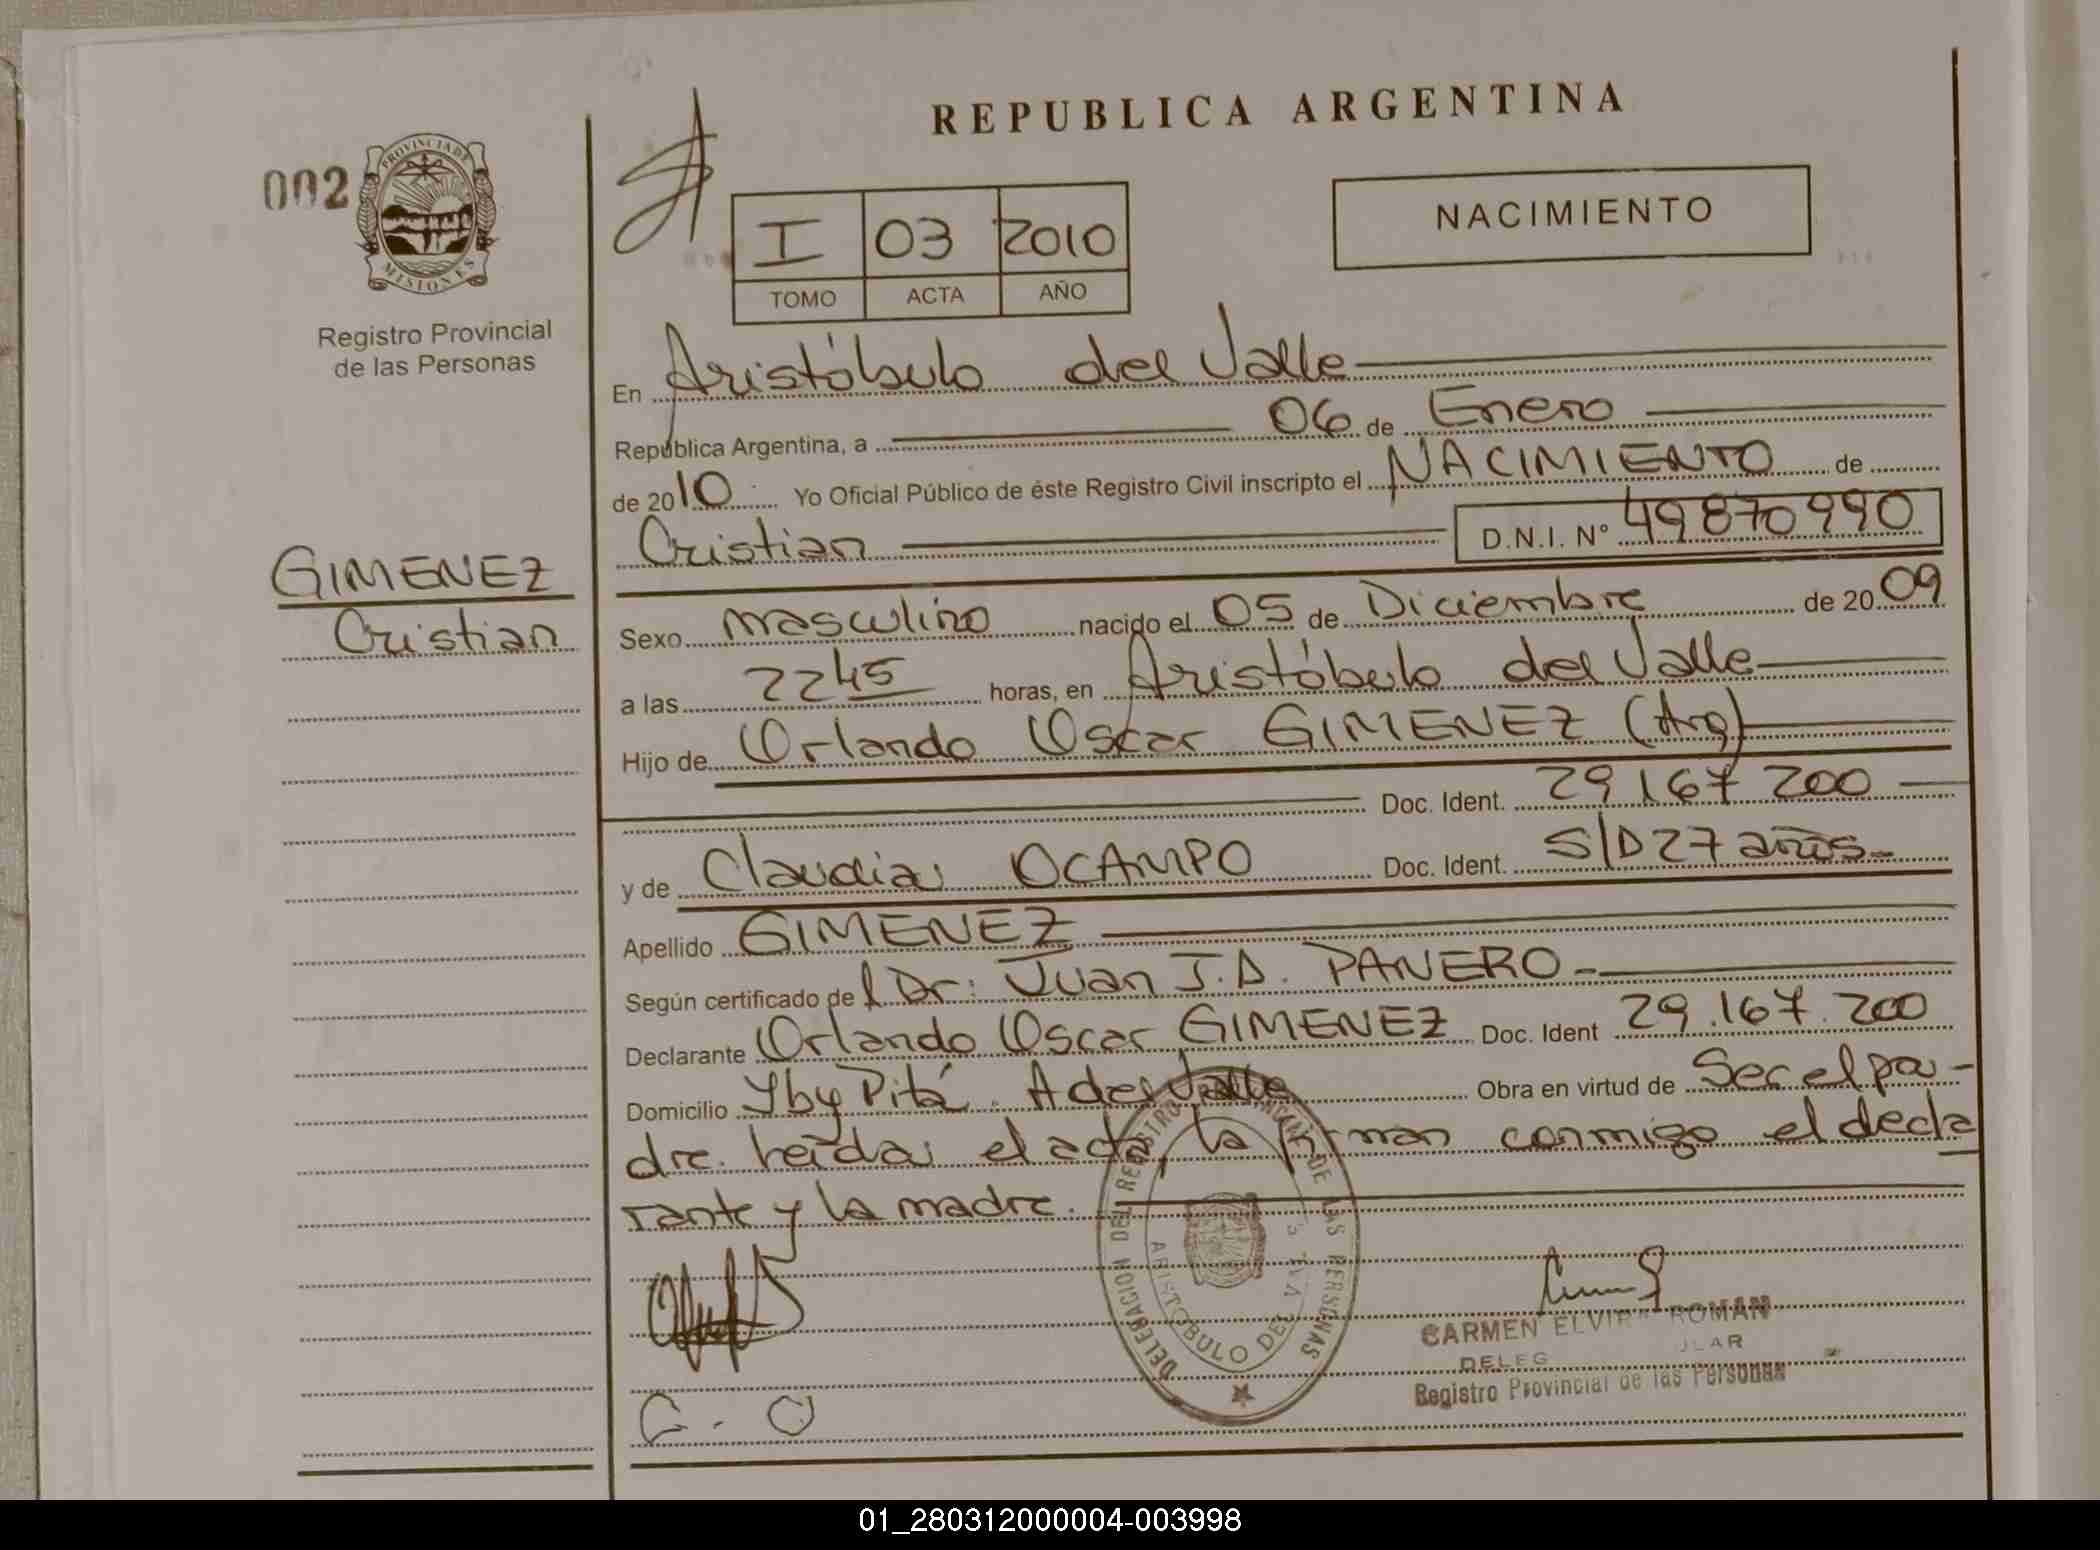 REPUBLICA ARGENTINA
002
PROVINCIA DE
MISIONES
Registro Provincial
de las Personas
I 03 2010
TOMO ACTA AÑO
NACIMIENTO
En Aristóbulo del Valle
República Argentina, a 06 de Enero
de 2010 Yo Oficial Público de éste Registro Civil inscripto el NACIMIENTO de
Cristian D.N.I. Nº 49870990
GIMENEZ
Cristian
Sexo masculino nacido el 05 de Diciembre de 2009
a las 2245 horas, en Aristóbulo del Valle
Hijo de Orlando Oscar GIMENEZ (Arg)
Doc. Ident. 29 167 200
y de Claudia OCAMPO Doc. Ident. S/D 27 años.
Apellido GIMENEZ
Según certificado del Dr: Juan J.D. PANERO
Declarante Orlando Oscar GIMENEZ Doc. Ident 29.167.200
Domicilio Yby Pitá. A del Valle Obra en virtud de Ser el pa-
dre. leída el acta, la firman conmigo el decla
rante y la madre.
C. O
DELEGACION DEL REGISTRO DE LAS PERSONAS
ARISTOBULO DEL VALLE
CARMEN ELVIRA ROMAN
Registro Provincial de las Personas
01_280312000004-003998